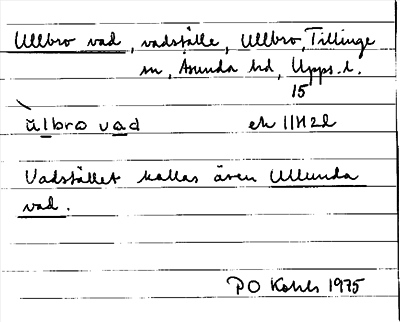 Ullbro vad, vadställe, Ullbro, Tillinge
sn, Åsunda hd, Upps. l.
15
ùlbro vad ek 11H2d
Vadstället kallas även Ullunda
vad.
PO Kohls 1975